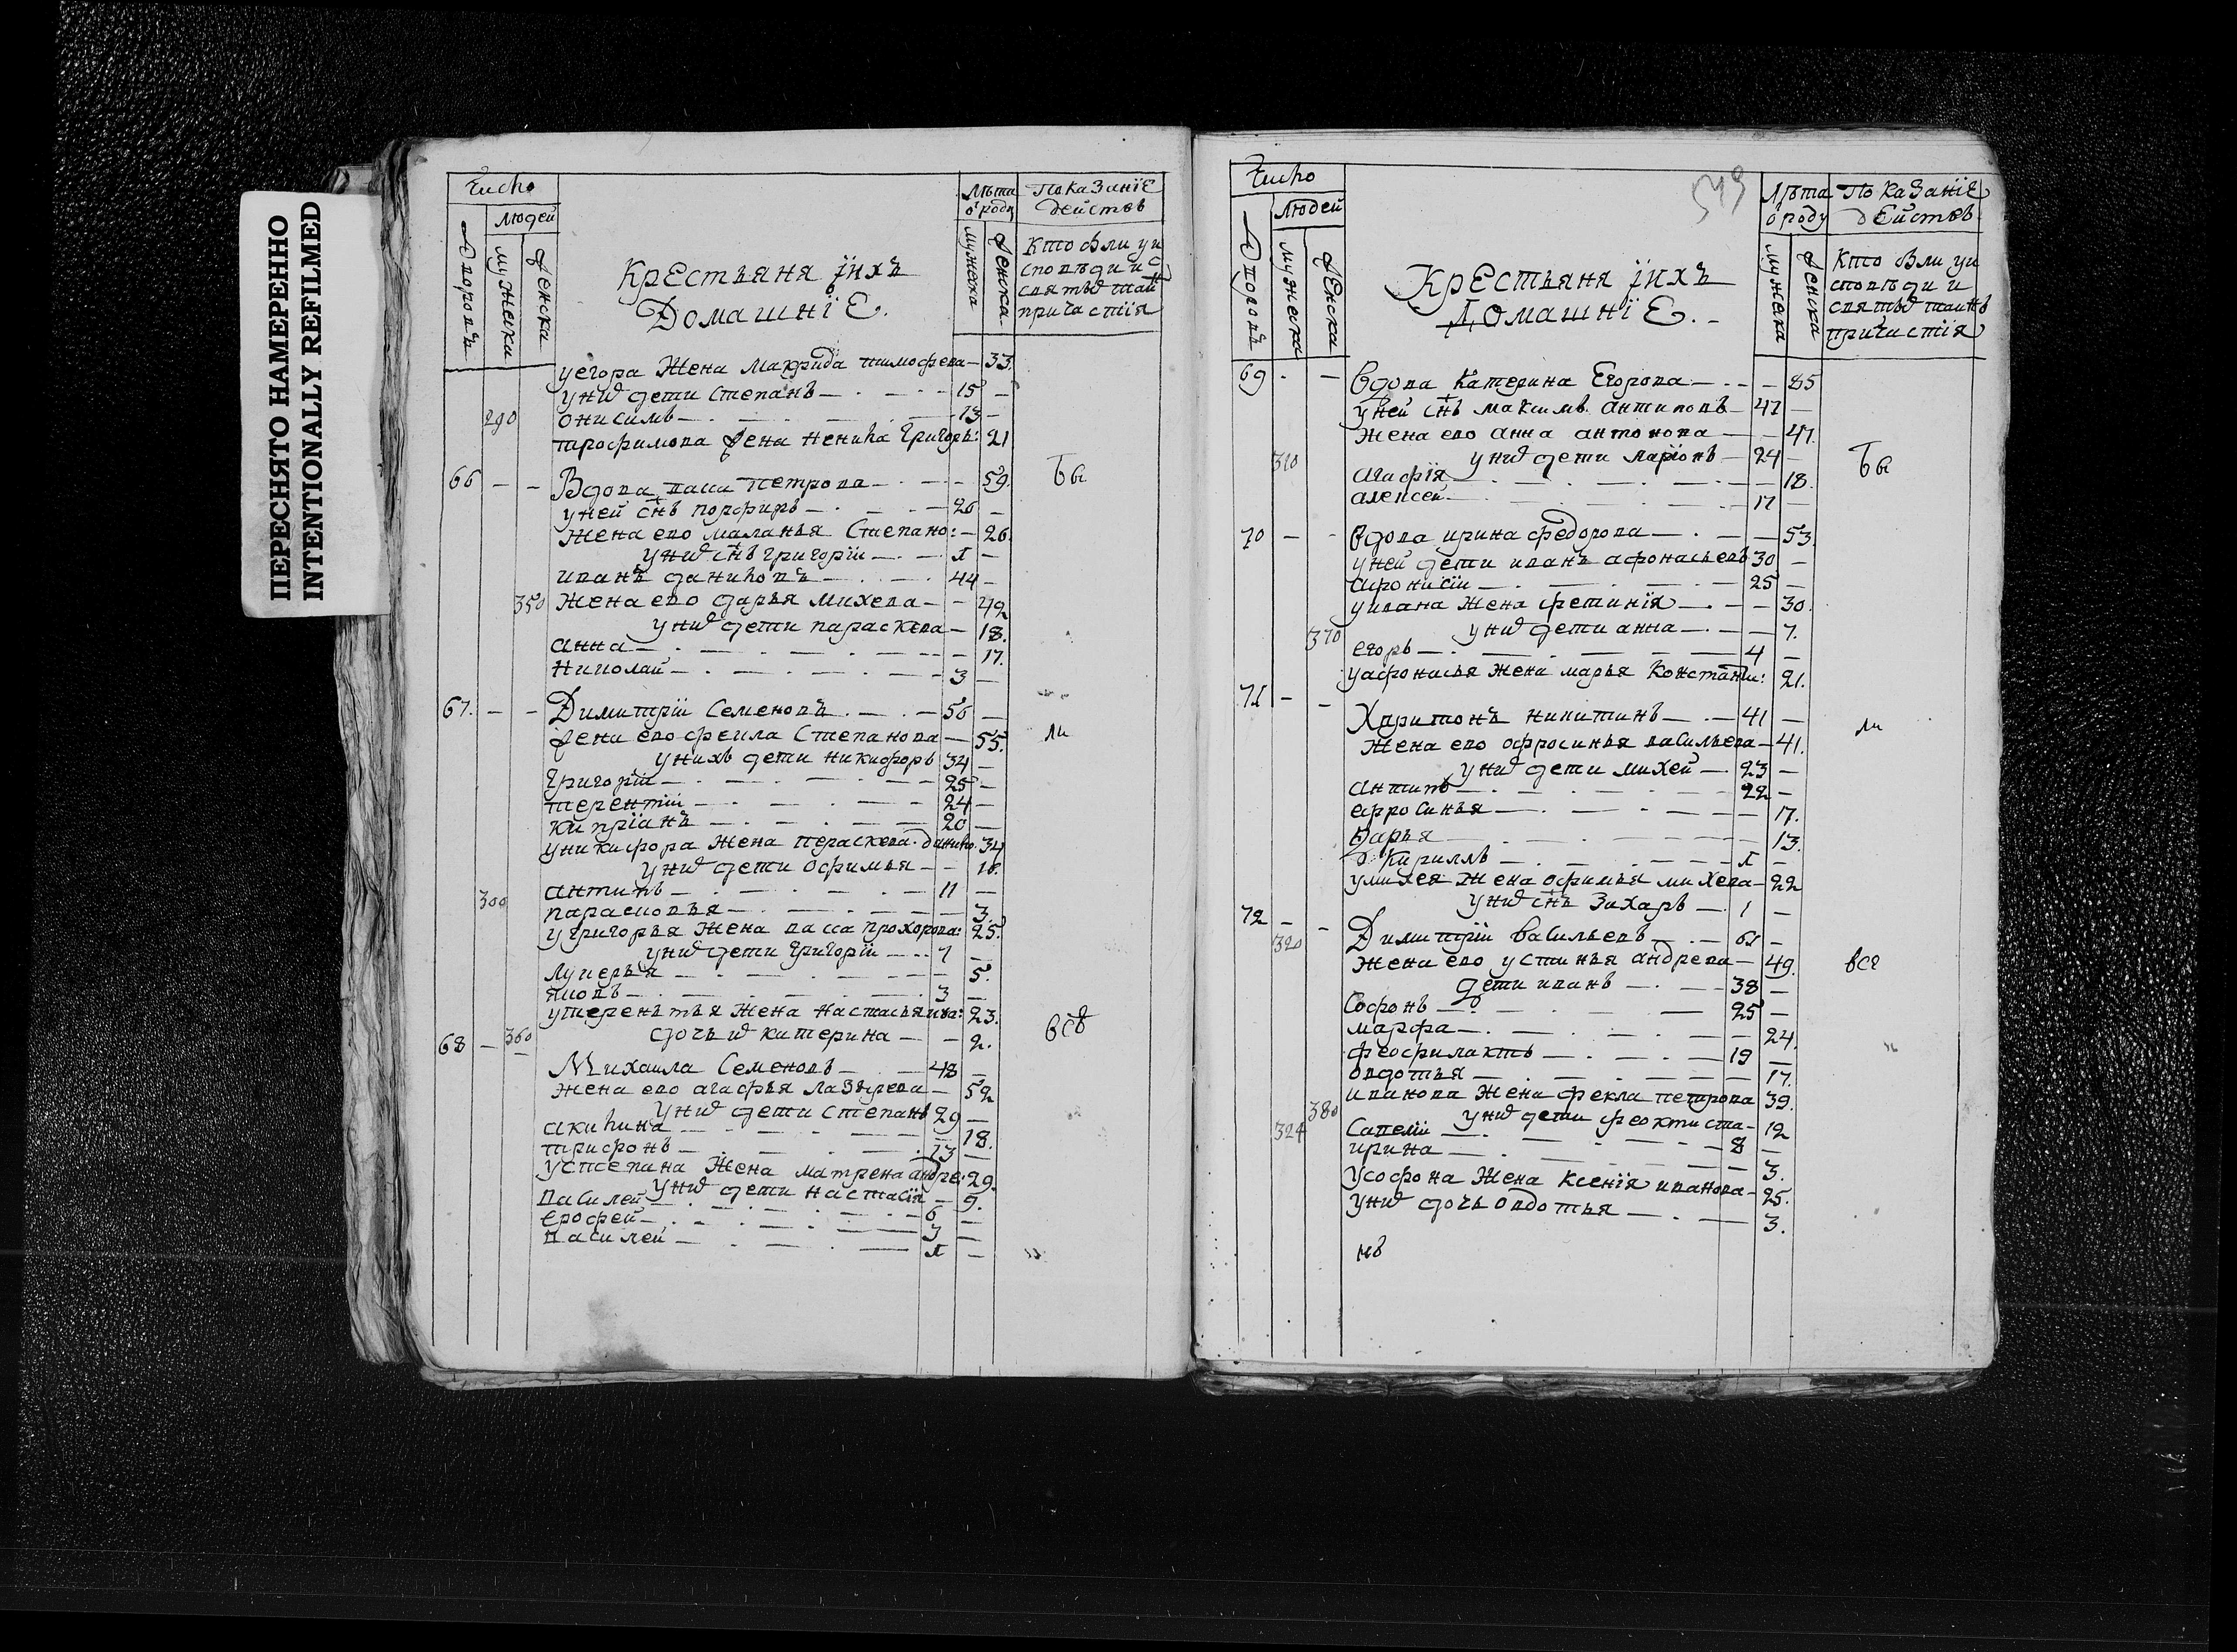 ПЕРЕСНЯТО НАМЕРЕННО
INTENTIONALLY REFILMED
Число
людей
дворовъ
мужеска
женска
Крестьяня їихъ
Домашнїе.
лѣта
ѿ роду
мужеска
женска
Показанїе
действъ
кто былъ уи
споведи и с
святых таи
причастїя
уегора жена макрида тимофева — 33.
у них дети степанъ — 15 —
290 онисимъ — 13 —
трофимова жена ненила григоръ: 21
66 — — Вдова васа петрова — 59. Бы
у ней сн̃ъ порфиръ — 26 —
жена ево маланья степано: — 26.
у них сн̃ъ григорїи —
иванъ даниловъ — 44 —
350 жена ево дарья михева — 42
у них дети параскева — 18.
анна — 17.
николай — 3 —
67. — — Димитрїи Семеновъ — 56 —
жена ево феила степанова — 55. ли
у нихъ дети никифоръ 34 —
григорїи — 25 —
терентїи — 24 —
кипрїанъ — 20 —
уникифора жена пераскева данило. 34
у них дети офимья — 16.
300 антипъ — 11 —
парасковья — 3.
угригорья жена васса прохорова: 25.
у них дети григорїи — 7 —
лукерья — 5.
яковъ — 3 —
утеренътья жена настасья ива: 23. всѣ
360 дочь их катерина — 2.
68 — — Михаила Семеновъ — 48 —
жена ево агафья лазырева — 52
у них дети степанъ 29 —
акилина — 18.
трифонъ — 13 —
устепана жена матрена андре: 29.
у них дети настасїя — 9.
василей — 6 —
ерофей — 3 —
василей —
Число
людей
дворовъ
мужеска
женска
549
Крестьяня їихъ
Домашнїе.
лѣта
ѿ роду
мужеска
женска
Показанїе
действъ
кто былъ уи
споведи и
святых таинъ
причастїя
69 — вдова катерина егорова — 85
у ней сн̃ъ максимъ антиповъ — 47 —
жена ево анна антонова — 47.
310 у них дети ларїонъ — 24 — Бы
агафїя — 18.
алексей — 17 —
70 — — вдова ирина федорова — 53.
у ней дети иванъ афонасьевъ 30 —
афонисїи — 25 —
уивана жена фетинїя — 30.
370 у них дети анна — 7.
егоръ — 4 —
уафонасья жена марья константи: 21.
71 — — Харитонъ никитинъ — 41 — ли
жена ево офросинья васильева — 41.
у них дети михей — 23 —
антипъ — 22 —
афросинья — 17.
дарья — 13.
кириллъ —
умихея жена офимья михева — 22
у них сн̃ъ захаръ — 1 —
72 — —
320 Димитрїи васильевъ — 61 —
жена ево устинья андрева — 49. все
дети иванъ — 38 —
софонъ — 25 —
марфа — 24.
феофилактъ — 19 —
овдотья — 17.
иванова жена фекла петрова 39.
380 у них дети феоктиста — 12
324 савелїи — 8 —
ирина — 3.
усофона жена ксенїя иванова — 25.
у них дочь овдотья — 3.